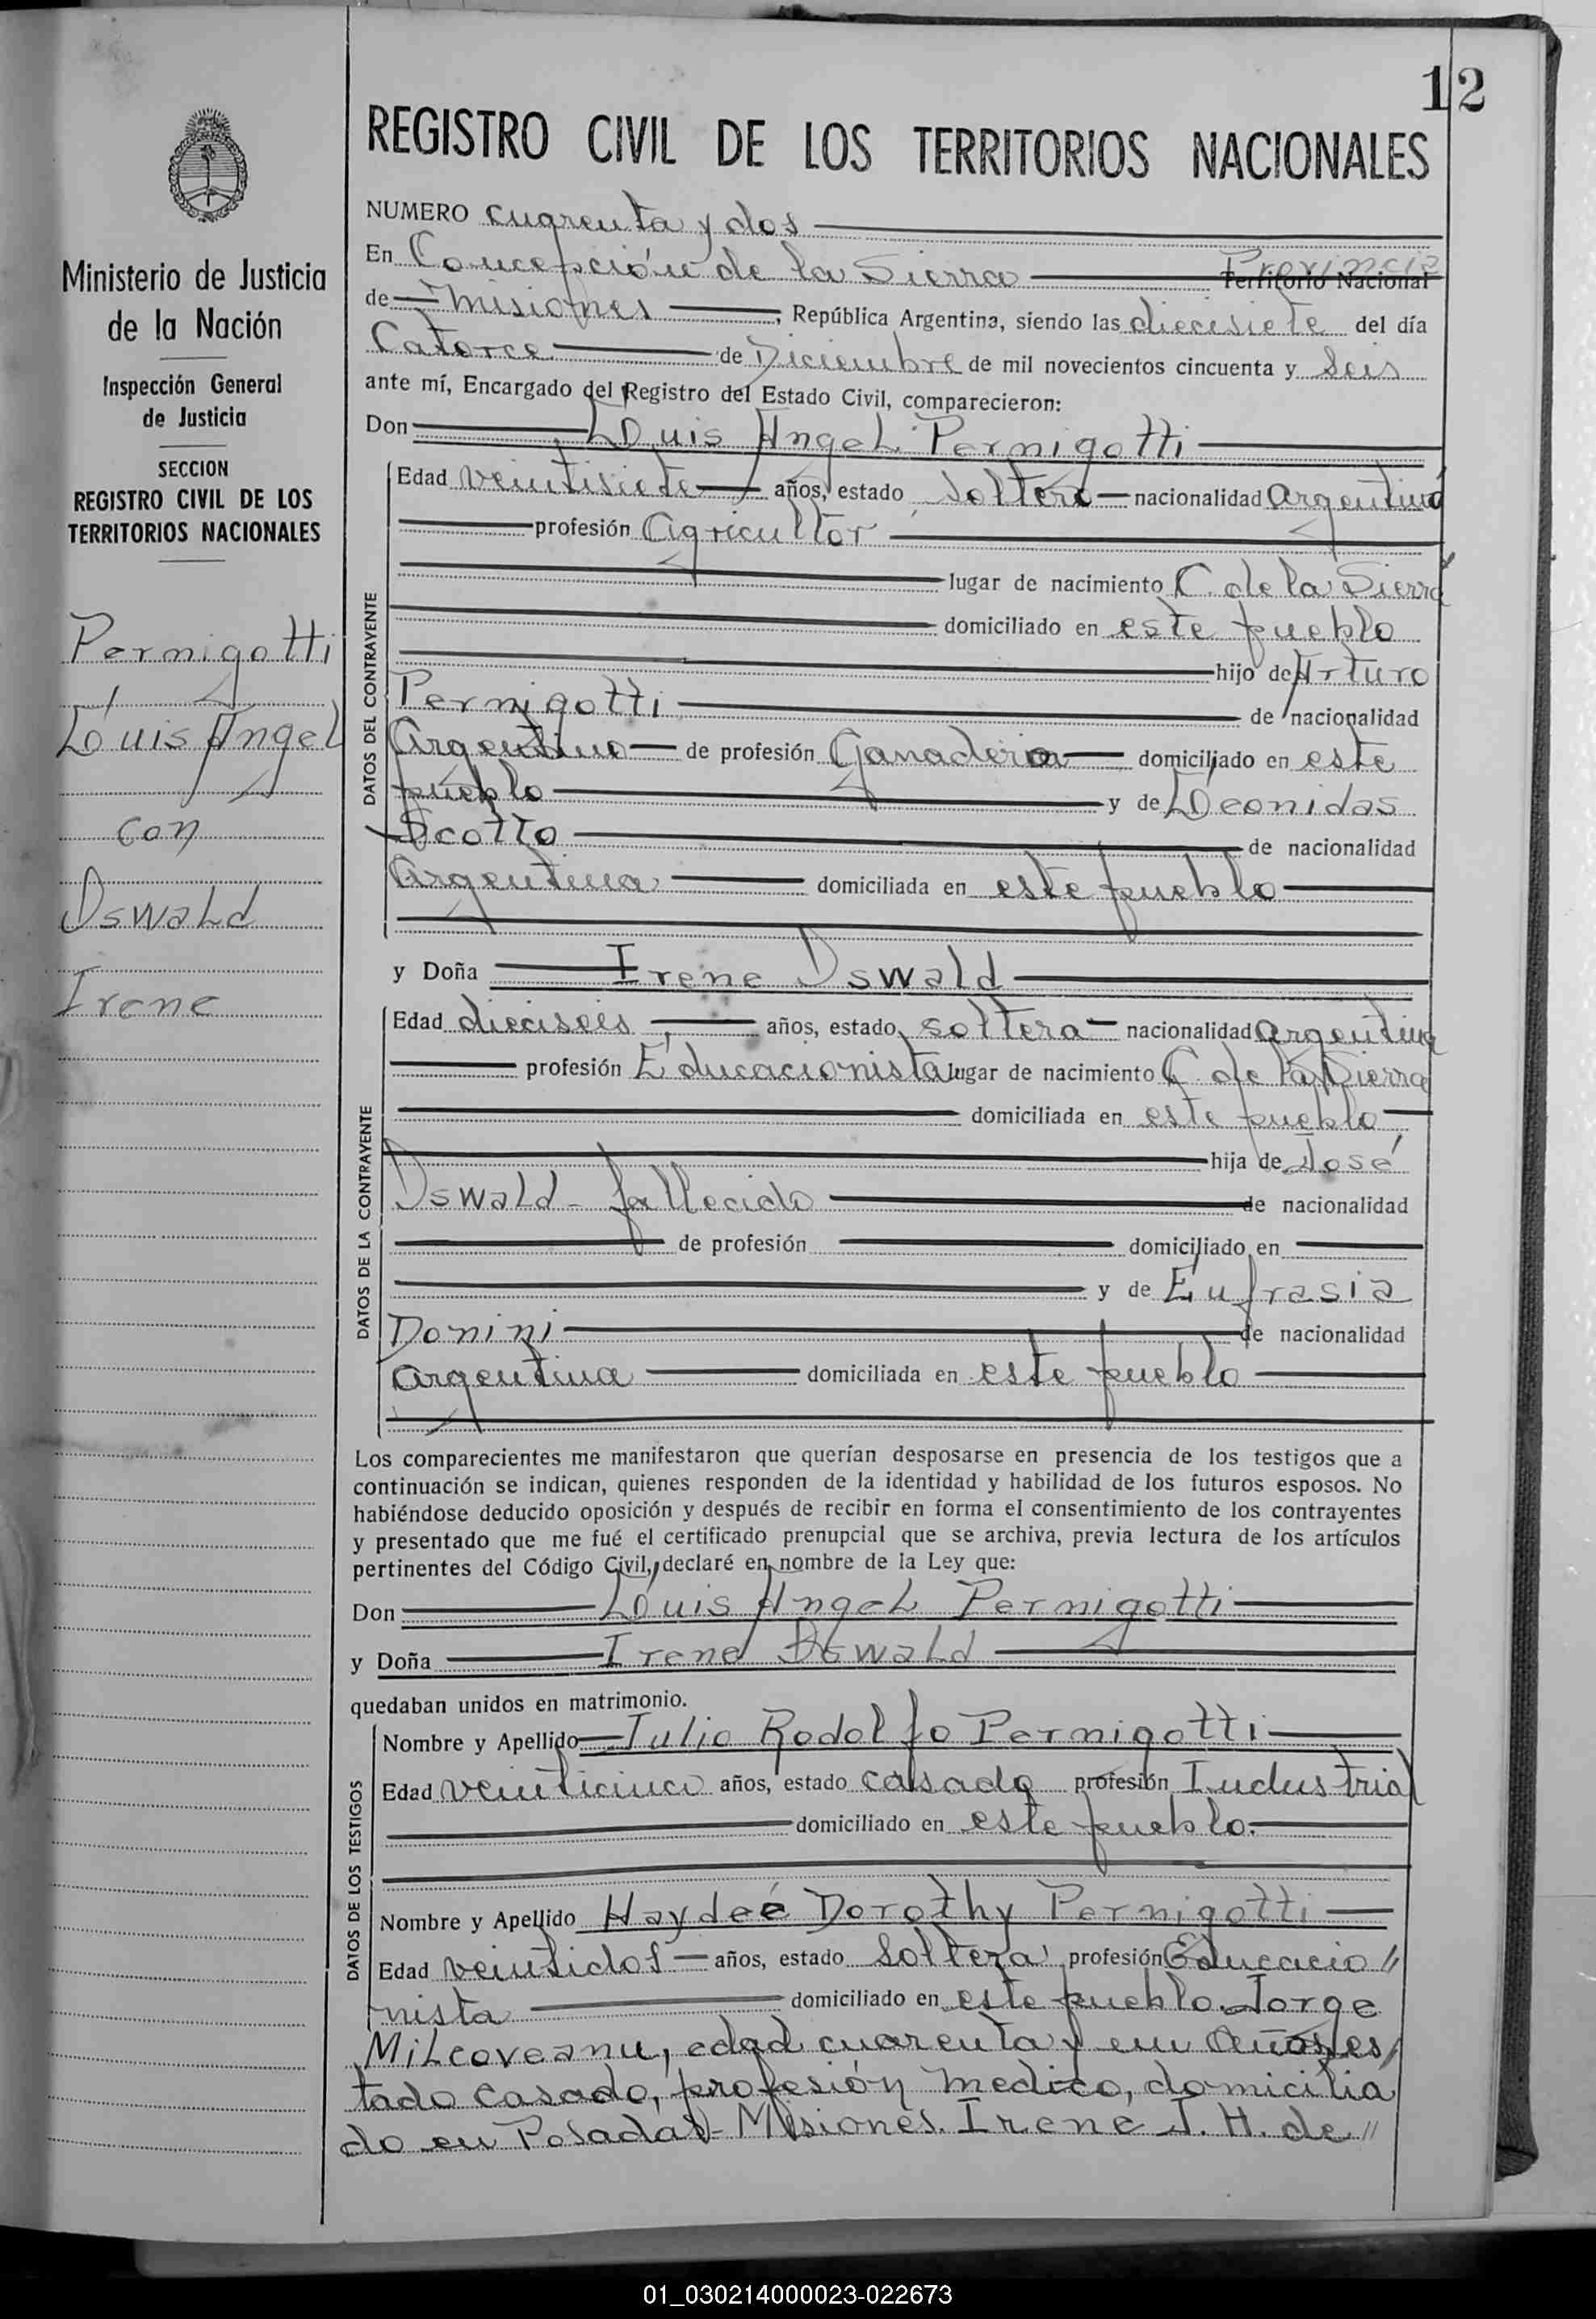 12
REGISTRO CIVIL DE LOS TERRITORIOS NACIONALES
Ministerio de Justicia
de la Nación
Inspección General
de Justicia
SECCION
REGISTRO CIVIL DE LOS
TERRITORIOS NACIONALES
Pernigotti
Luis Angel
con
Oswald
Irene
NUMERO cuarenta y dos
En Concepción de la Sierra Provincia Territorio Nacional
de Misiones, República Argentina, siendo las diecisiete del día
Catorce de Diciembre de mil novecientos cincuenta y seis
ante mí, Encargado del Registro del Estado Civil, comparecieron:
Don Luis Angel Pernigotti
DATOS DEL CONTRAYENTE
Edad veintisiete años, estado soltero nacionalidad argentina
profesión agricultor
lugar de nacimiento C. de la Sierra
domiciliado en este pueblo
hijo de Arturo
Pernigotti de nacionalidad
Argentino de profesión Ganadero domiciliado en este
pueblo y de Leonidas
Scotto de nacionalidad
Argentina domiciliada en este pueblo
y Doña Irene Oswald
DATOS DE LA CONTRAYENTE
Edad dieciseis años, estado soltera nacionalidad argentina
profesión Educacionista lugar de nacimiento C. de la Sierra
domiciliada en este pueblo
hija de José
Oswald - fallecido de nacionalidad
de profesión domiciliado en
y de Eufrasia
Donini de nacionalidad
argentina domiciliada en este pueblo
Los comparecientes me manifestaron que querían desposarse en presencia de los testigos que a
continuación se indican, quienes responden de la identidad y habilidad de los futuros esposos. No
habiéndose deducido oposición y después de recibir en forma el consentimiento de los contrayentes
y presentado que me fué el certificado prenupcial que se archiva, previa lectura de los artículos
pertinentes del Código Civil, declaré en nombre de la Ley que:
Don Luis Angel Pernigotti
y Doña Irene Oswald
quedaban unidos en matrimonio.
DATOS DE LOS TESTIGOS
Nombre y Apellido Julio Rodolfo Pernigotti
Edad veinticinco años, estado casado profesión Industrial
domiciliado en este pueblo.
Nombre y Apellido Haydeé Dorothy Pernigotti
Edad veintidos años, estado soltera profesión Educacio"
nista domiciliado en este pueblo. Jorge
Milcoveanu, edad cuarenta y un años, es/
tado casado, profesión medico, domicilia
do en Posadas - Misiones. Irene J. H. de "
01_030214000023-022673